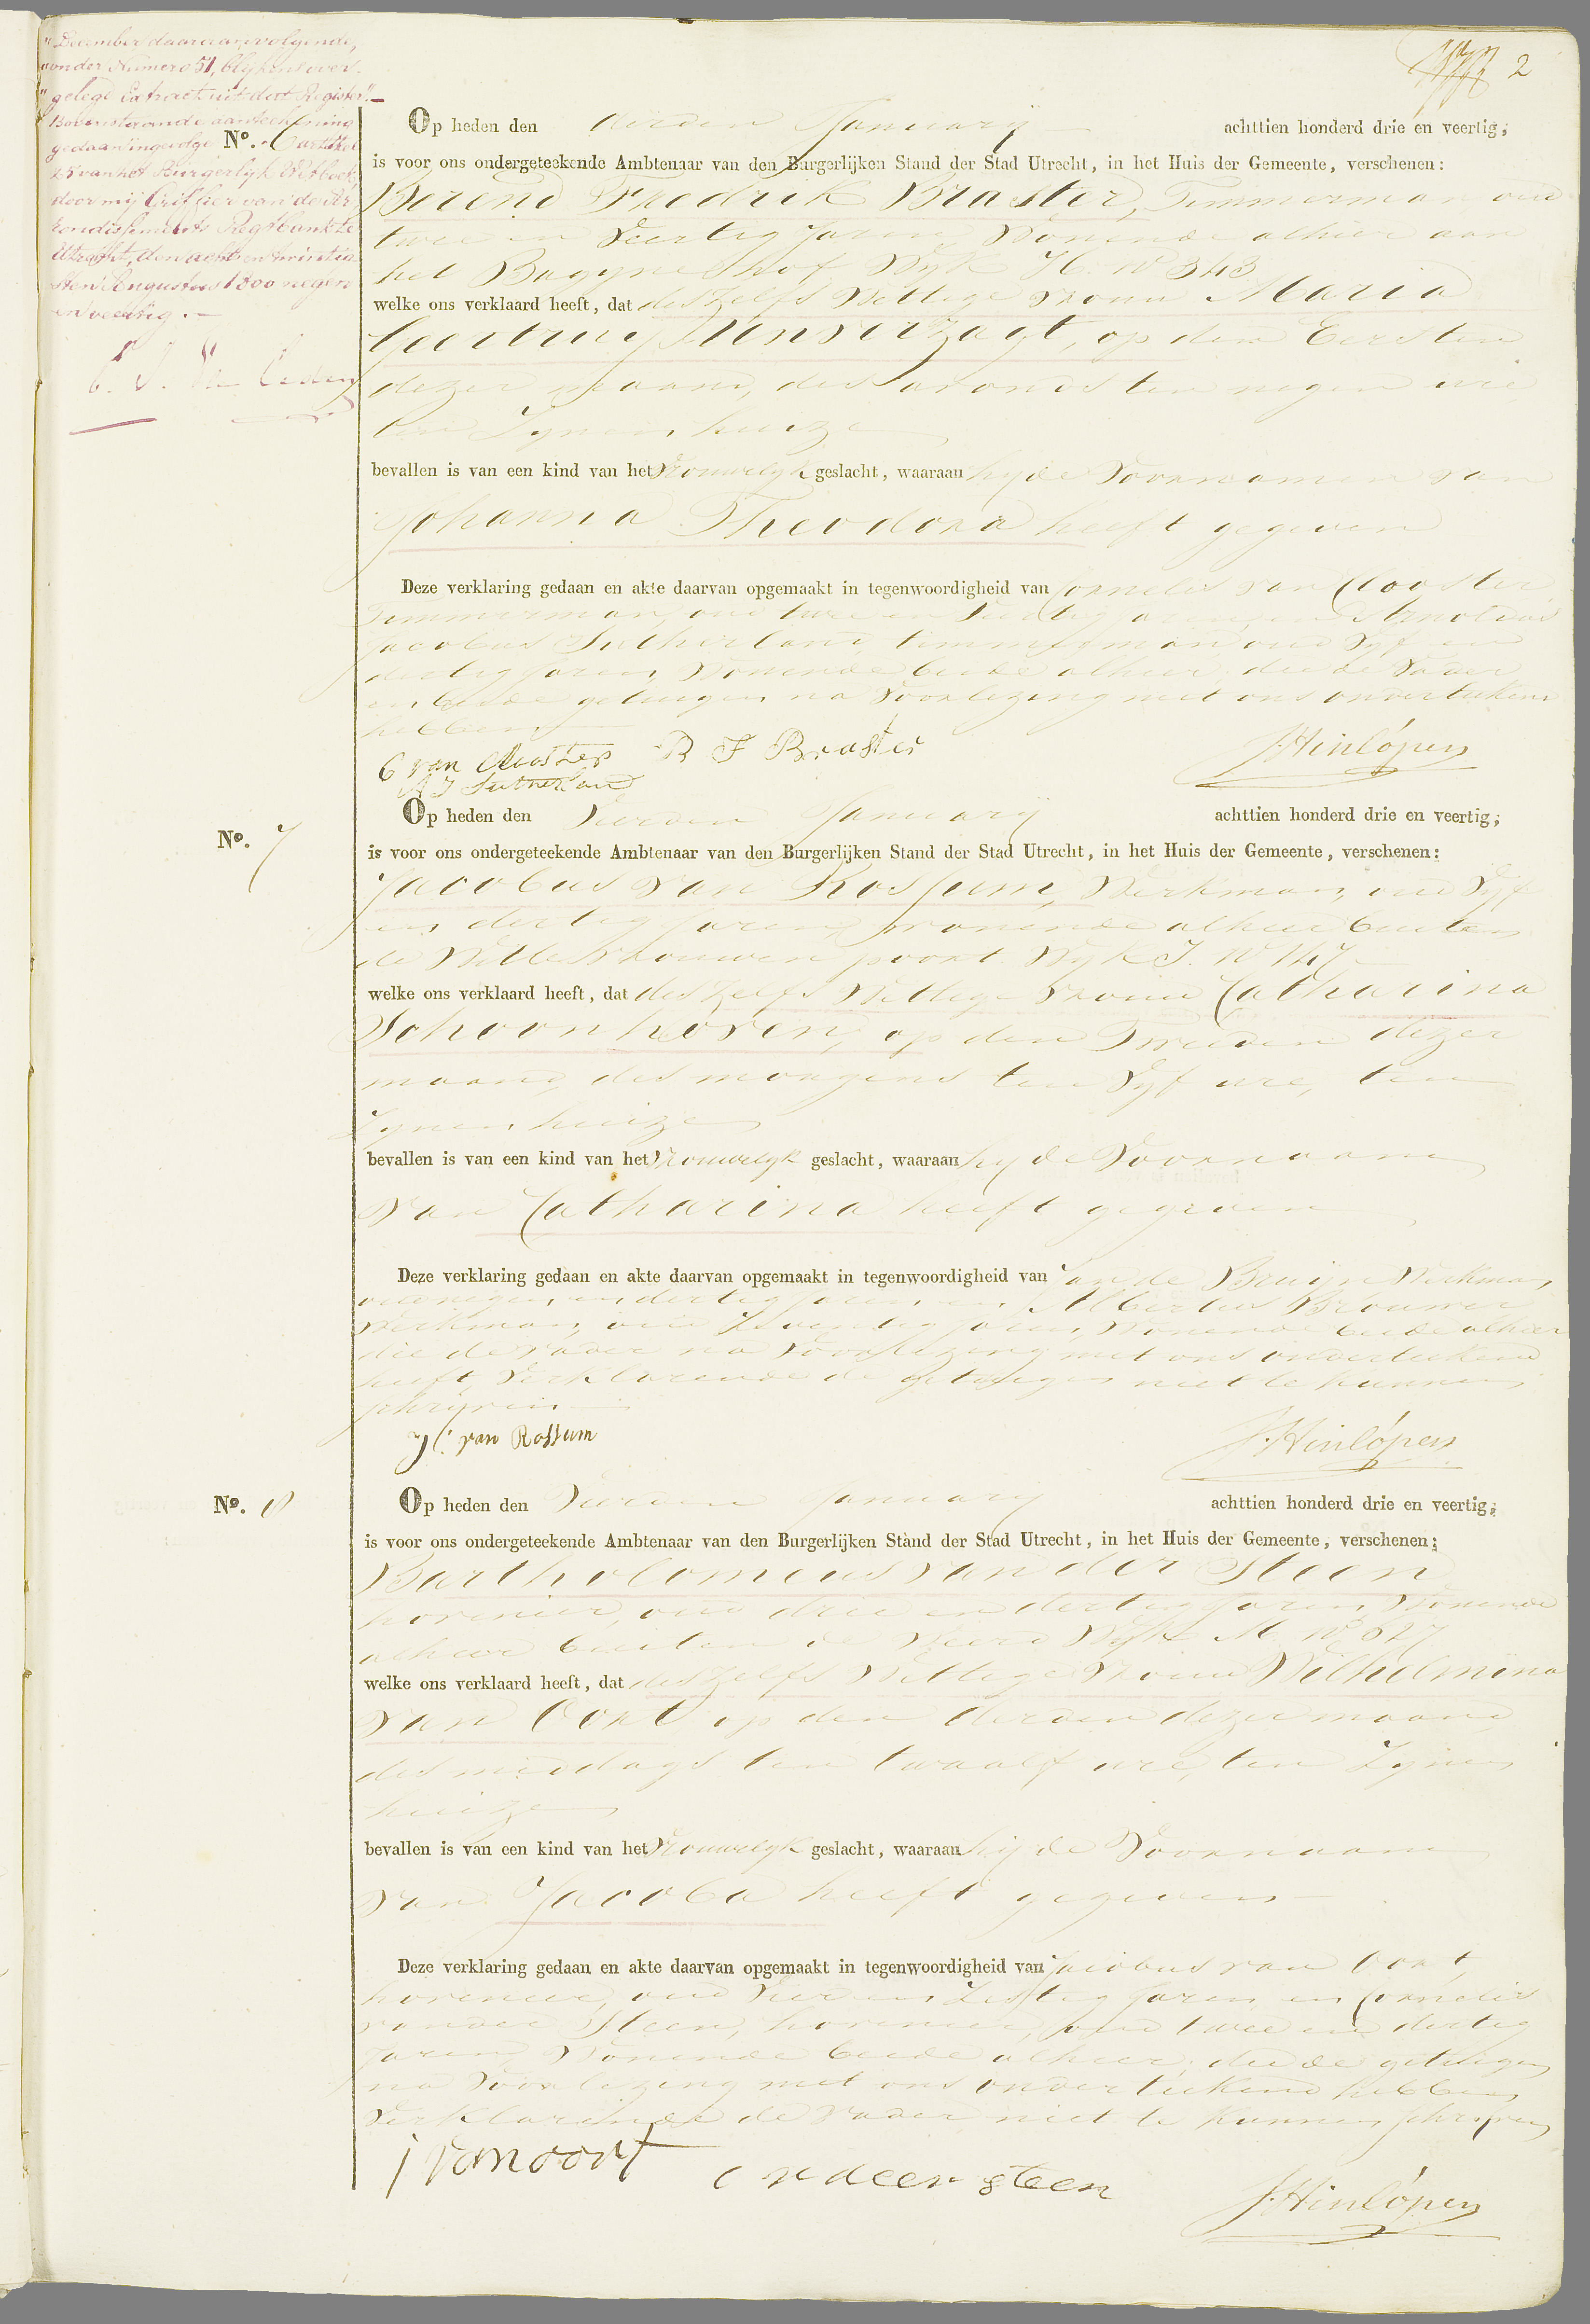 2
" December daaraanvolgende,
"onder Numero 51, blijkens over-
"gelegd Extract uit dat Register". —
Bovenstaande aanteekening
gedaan ingevolge artikel
25 van het Burgerlijk Wetboek,
door mij Griffier van de Ar-
rondissements Regtbank te
Utrecht, den acht en twintig
sten Augustus 1800 negen
en veertig. —
No. 6
Op heden den derden January achttien honderd drie en veertig;
is voor ons ondergeteekende Ambtenaar van den Burgerlijken Stand der Stad Utrecht, in het Huis der Gemeente, verschenen:
Berend Fredrik Braster, Timmerman oud
twee en veertig jaren, wonende alhier aan
het Bagyne hof Wyk H. No 343
welke ons verklaard heeft, dat deszelfs Wettige Vrouw Maria
Geertruy Onverzagt, op den Eersten
dezer maand, des avonds ten negen ure,
ten Zynen huize
bevallen is van een kind van het Vrouwelyk geslacht, waaraan hy de Voornamen van
Johanna Theodora heeft gegeven
Deze verklaring gedaan en akte daarvan opgemaakt in tegenwoordigheid van Cornelis van Clooster,
Timmerman, oud twee en veertig jaren, en Arnoldus
Jacobus Sutherland, timmerman oud Vyf en
dertig jaren, Wonende beide alhier, die de Vader
en beide getuigen na Voorlezing met ons onderteekend
hebben
C van Clooster B F Braster J. Hinlópen
A J Sutherland
No. 7
Op heden den Vierden January achttien honderd drie en veertig;
is voor ons ondergeteekende Ambtenaar van den Burgerlijken Stand der Stad Utrecht, in het Huis der Gemeente, verschenen:
Jacobus van Rossum, Werkman, oud Vyf
en dertig jaren, wonende alhier buiten
de Wittevrouwen poort Wyk I. No 147
welke ons verklaard heeft, dat deszelfs Wettige Vrouw Catharina
Schoonhoven, op den Tweeden dezer
maand, des morgens ten Vyf ure, ten
Zynen huize
bevallen is van een kind van het Vrouwelyk geslacht, waaraan hy de Voornaam
van Catharina heeft gegeven
Deze verklaring gedaan en akte daarvan opgemaakt in tegenwoordigheid van Jan de Bruijn Werkman,
oud negen en dertig jaren, en Albertus Brouwer
Werkman, oud Zeventig jaren, wonende beide alhier
die de vader na Voorlezing met ons onderteekend
heeft, Verklarende de getuigen niet te kunnen
schryven
J C van Rossum J. Hinlópen
No. 8
Op heden den Vierden January achttien honderd drie en veertig;
is voor ons ondergeteekende Ambtenaar van den Burgerlijken Stand der Stad Utrecht, in het Huis der Gemeente, verschenen:
Bartholomeus van der Steen
hovenier, oud drie en dertig jaren, Wonende
alhier buiten de Weerd Wyk M. No 627
welke ons verklaard heeft, dat deszelfs Wettige Vrouw Wilhelmina
van Oort op den derden dezer maand
des middags ten twaalf ure, ten Zynen
huize
bevallen is van een kind van het Vrouwelyk geslacht, waaraan hy de Voornaam
van Jacoba heeft gegeven
Deze verklaring gedaan en akte daarvan opgemaakt in tegenwoordigheid van Jacobus van Oort,
hovenier, oud Vier en Zestig jaren, en Cornelis
van der Steen, hovenier, oud twee en dertig
jaren, Wonende beide alhier, die de getuigen
na Voorlezing met ons onderteekend hebben,
Verklarende de vader niet te kunnen schryven
j van oort c v deer steen J. Hinlópen